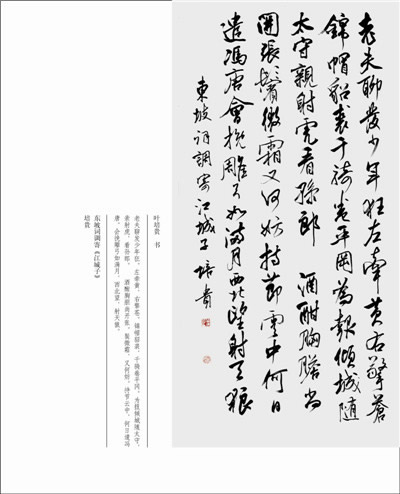 老夫聊發少年狂左牽黃右擎蒼
錦帽貂裘千騎卷平岡為報傾城隨
太守親射虎看孫郎 酒酣胸膽尚
開張鬢微霜又何妨持節雲中何日
遣馮唐會挽雕弓如滿月西北望射天狼
東坡詞調寄江城子 培貴
叶培贵 书
老夫聊发少年狂，左牵黄，右擎苍，锦帽貂裘，千骑卷平冈。为报倾城随太守，
亲射虎，看孙郎。 酒酣胸胆尚开张，鬓微霜，又何妨，持节云中，何日遣冯
唐，会挽雕弓如满月，西北望，射天狼。
东坡词调寄《江城子》
培贵